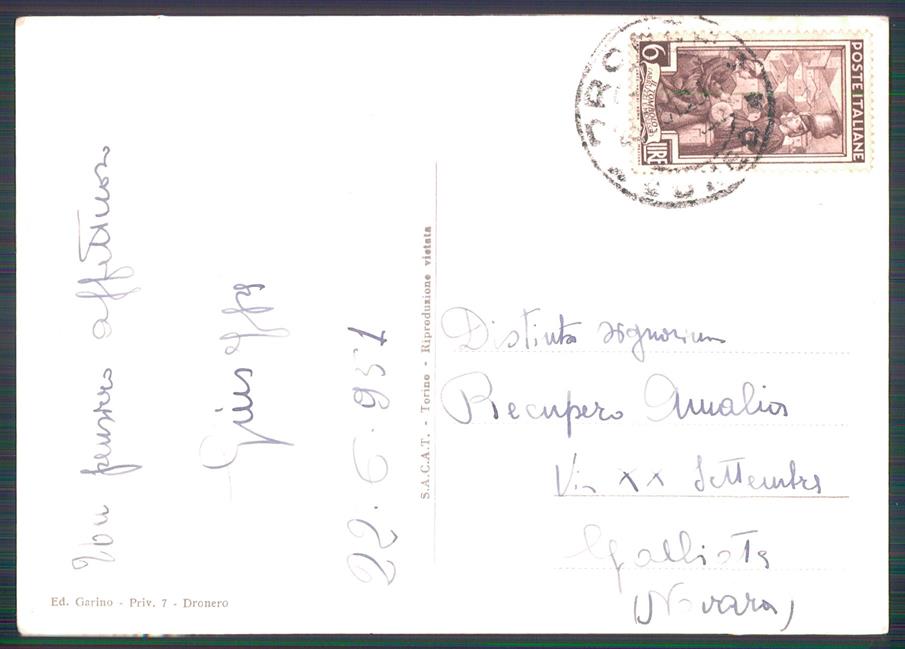 Un pensiero affettuoso
Giuseffe
22.6.951
Ed. Garino - Priv. 7 - Dronero
S.A.C.A.T. - Torino - Riproduzione vietata
6
LIRE
POSTE ITALIANE
Distinta signorina
Recupero Amalia
Via XX Settembre
Galliate
(Novara)